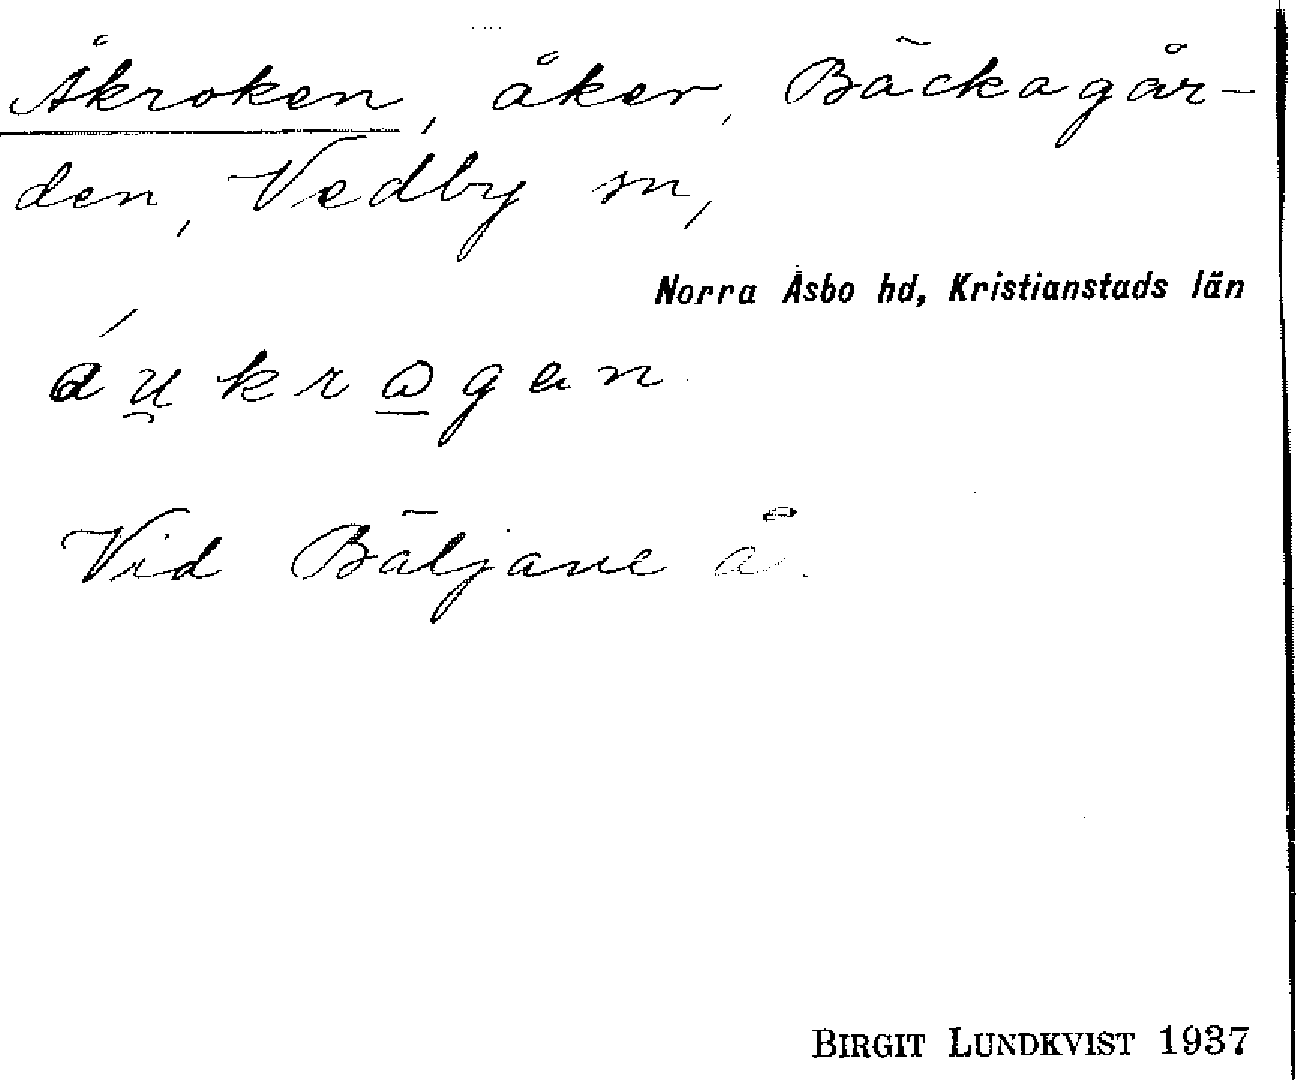 Åkroken, åker, Bäckagår-
den, Vedby sn,
Norra Åsbo hd, Kristianstads län
áu̯kro̲gan.
Vid Bäljane å.
BIRGIT LUNDKVIST 1937